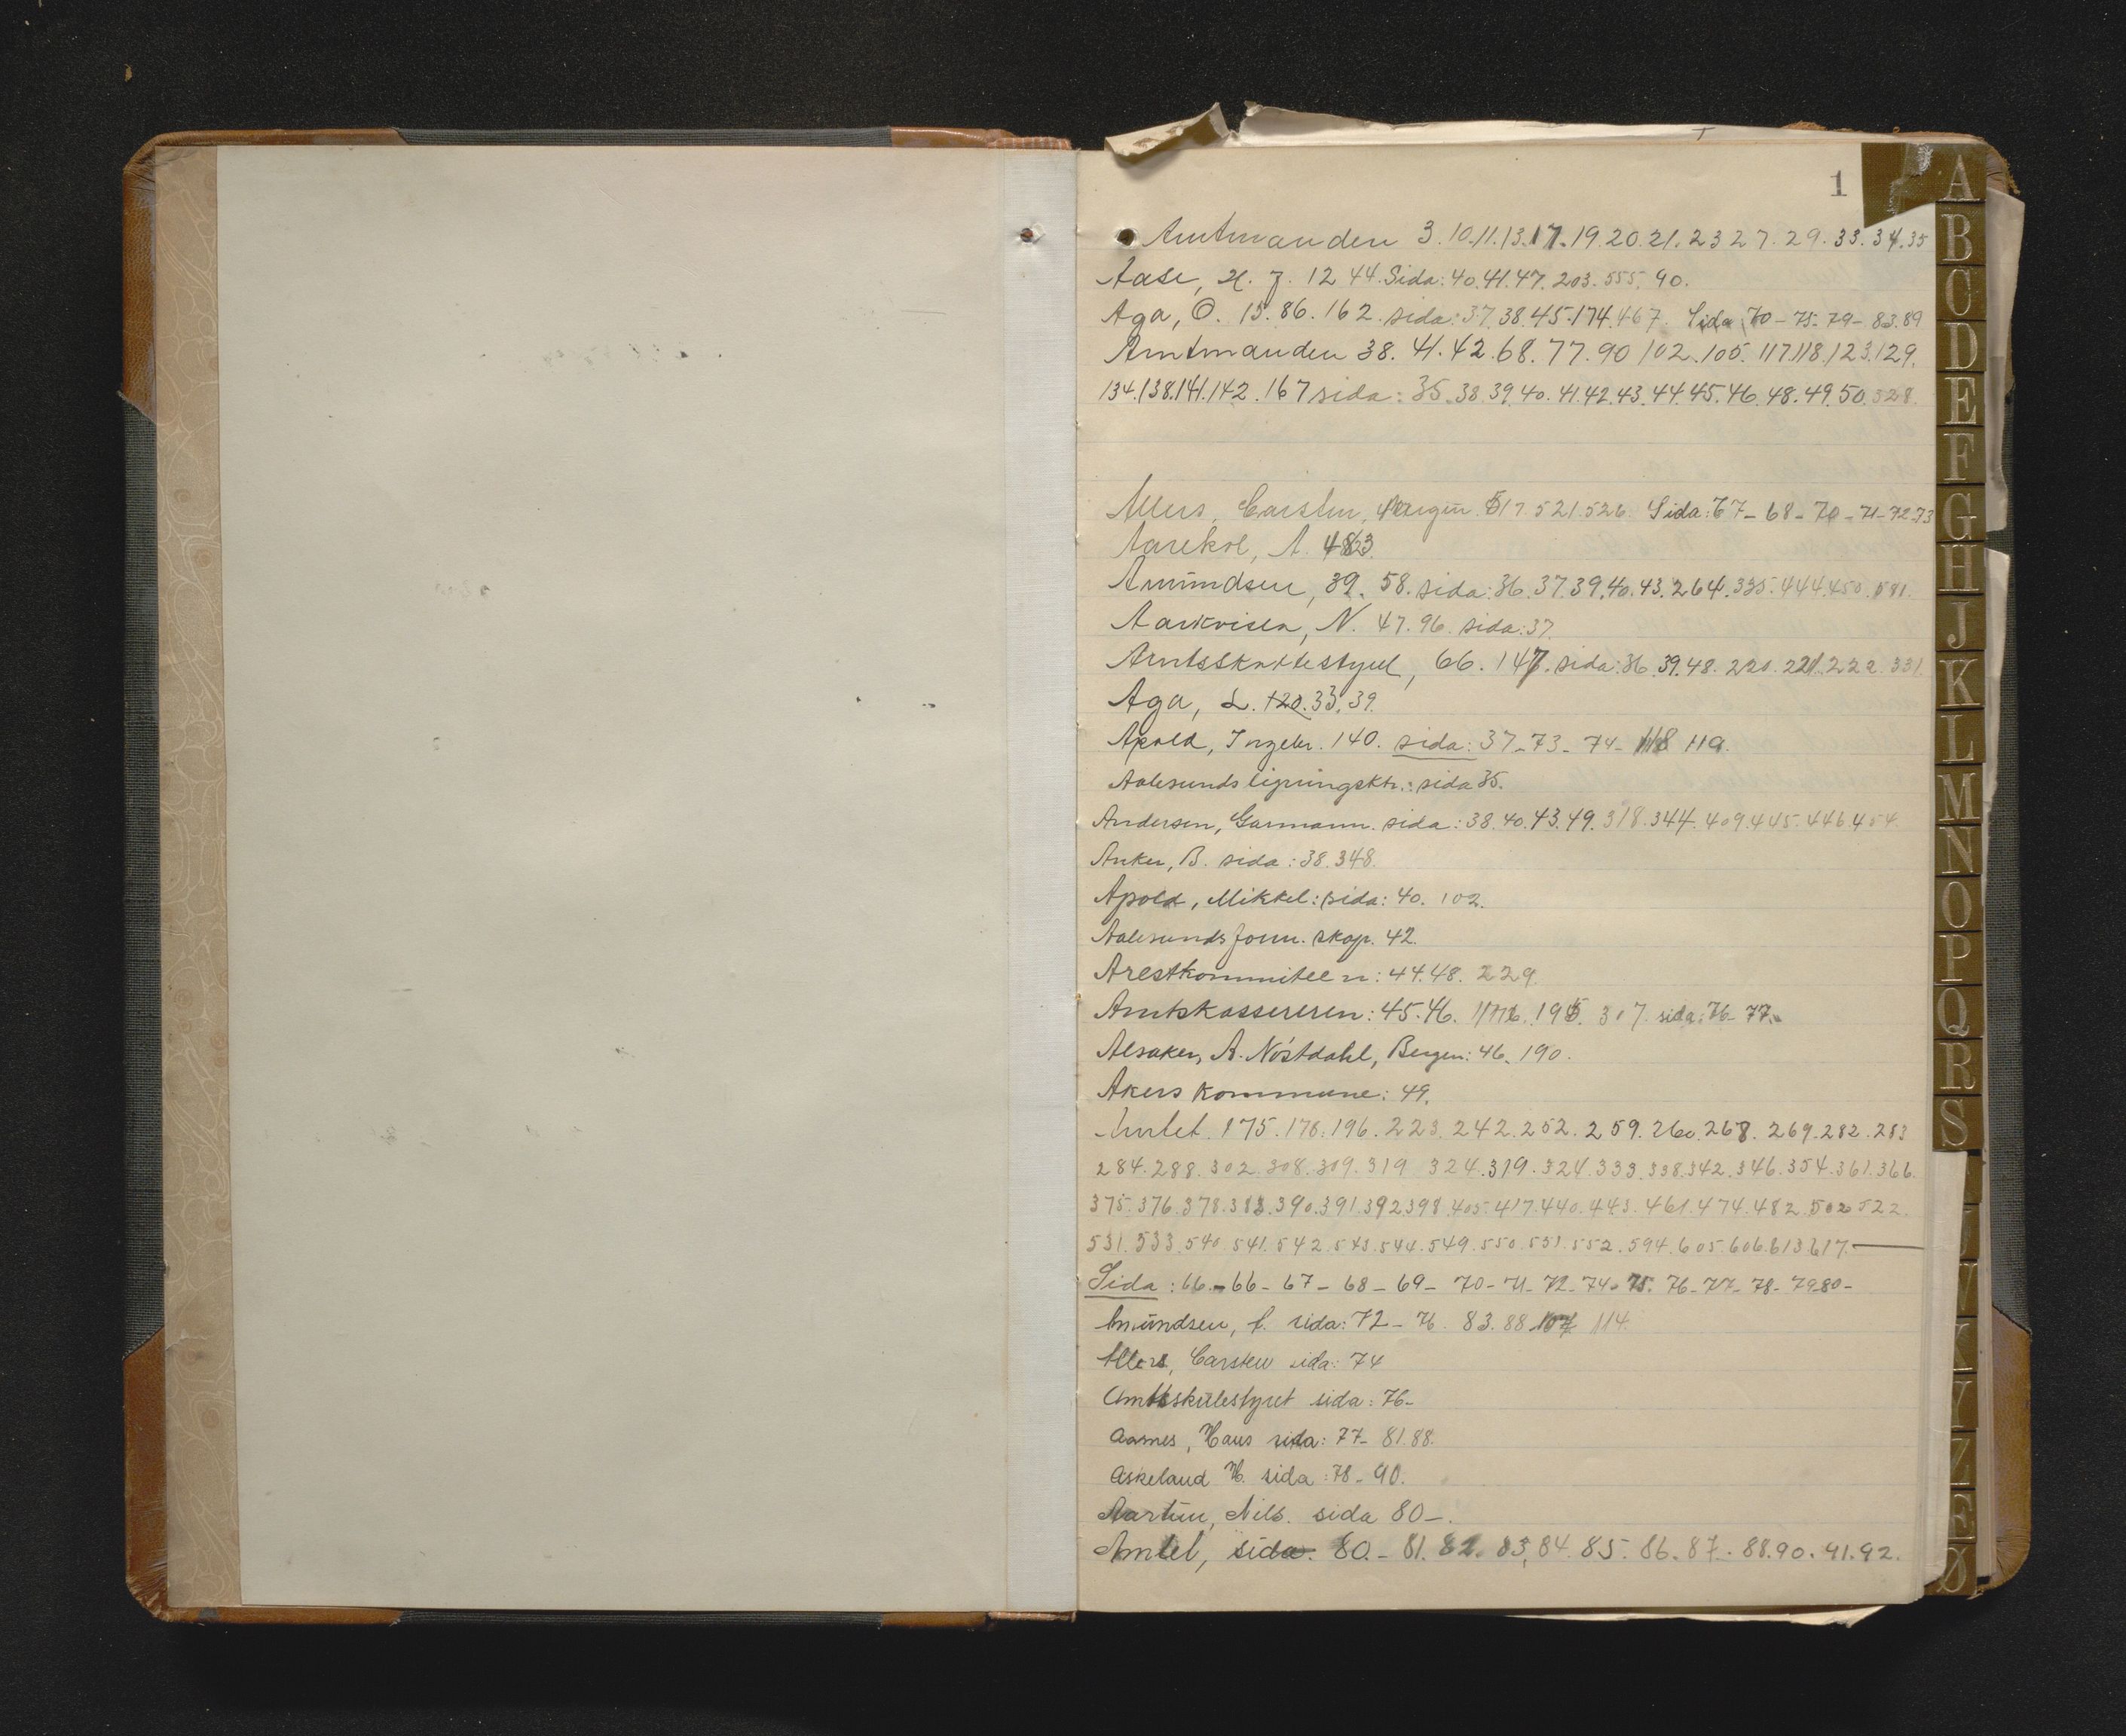 1
Amtmanden 3.10.11.13.17.19.20.21.23 27.29.33.34.35
Aase, H. J. 12 44. Sida: 40.41.47.203.555.90.
Aga, O. 15.86.162. sida: 37.38.45-174.467. Sida 70-75-79-83.89
Amtmanden 38.41.42.68.77.90 102.105.117.118.123.129.
134.138.141.142.167 sida: 35.38.39.40.41.42.43.44.45.46.48.49.50.328.
Allers, Carsten, 517.521.526. Sida: 67-68-70-71-72-73
A. 483.
Amundsen, 39.58. sida: 36.37.39.40.43.264.335.444.450.581.
Aarkvisla, N. 47.96. sida: 37.
Amtsskattestyret, 66.147. sida: 36.39.48.220.221.222.331.
Aga, L. 120.33.39.
Apold, Ingebr. 140. sida: 37-73-74-118 119.
Aalesunds ligningsktr.: sida 35.
Andersen, Garmann. sida: 38.40.43.49.318.344.409.445.446 454.
Anker, B. sida: 38.348.
Apold, Mikkel: sida: 40.102.
Aalesunds form. skap. 42.
Arestkommiteen: 44.48.229.
Amtskassereren: 45.46. 195. 307. sida: 76-77.
Alsaker, A. Nöstdahl, Bergen: 46.190.
Akers kommune: 49.
Amtet 175.178.196.223.242.252.259.260.268.269.282.283
284.288.302.308.309.319 324.319.324.333.338.342.346.354.361.366.
375.376.378.383.390.391.392 398.405.417.440.443.461.474.482.502 522.
531.533.540.541.542.543.544.549.550.551.552.594.605.606.613.617.
Sida: 66-66-67-68-69-70-71-72-74-75.76-77-78-79-80-
Amundsen, C. sida: 72-76.83.88.107 114.
Allers, Carsten sida: 74
Amtsskulestyret sida: 76-
Aarnes, Hans sida: 77-81.88.
Askeland H. sida: 78-90.
Aartun, Nils. sida 80-.
Amtet, sida. 80.-81.82.83,84.85.86.87.88.90.91.92.
A
B
C
D
E
F
G
H
J
K
L
M
N
O
P
Q
R
S
Y
Z
Æ
Ø